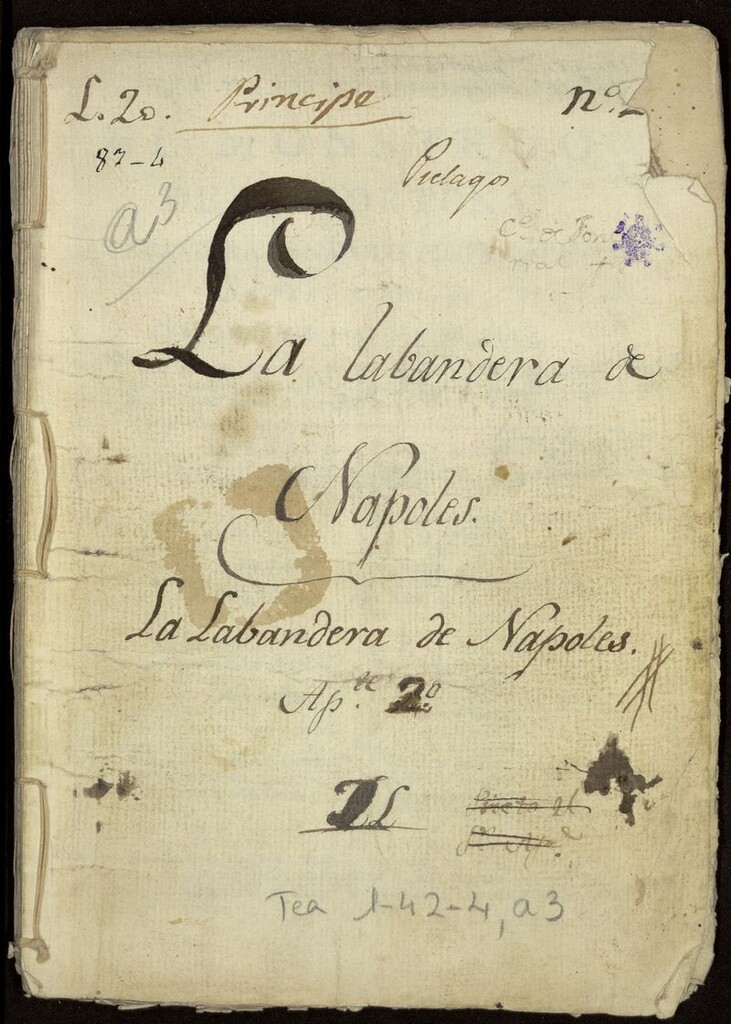 L. 2º. Principe nº.
87-4
Pielagos
a3
La labandera de
Napoles.
La Labandera de Napoles.
Ap.te 2º
L
Tea 1-42-4, a3